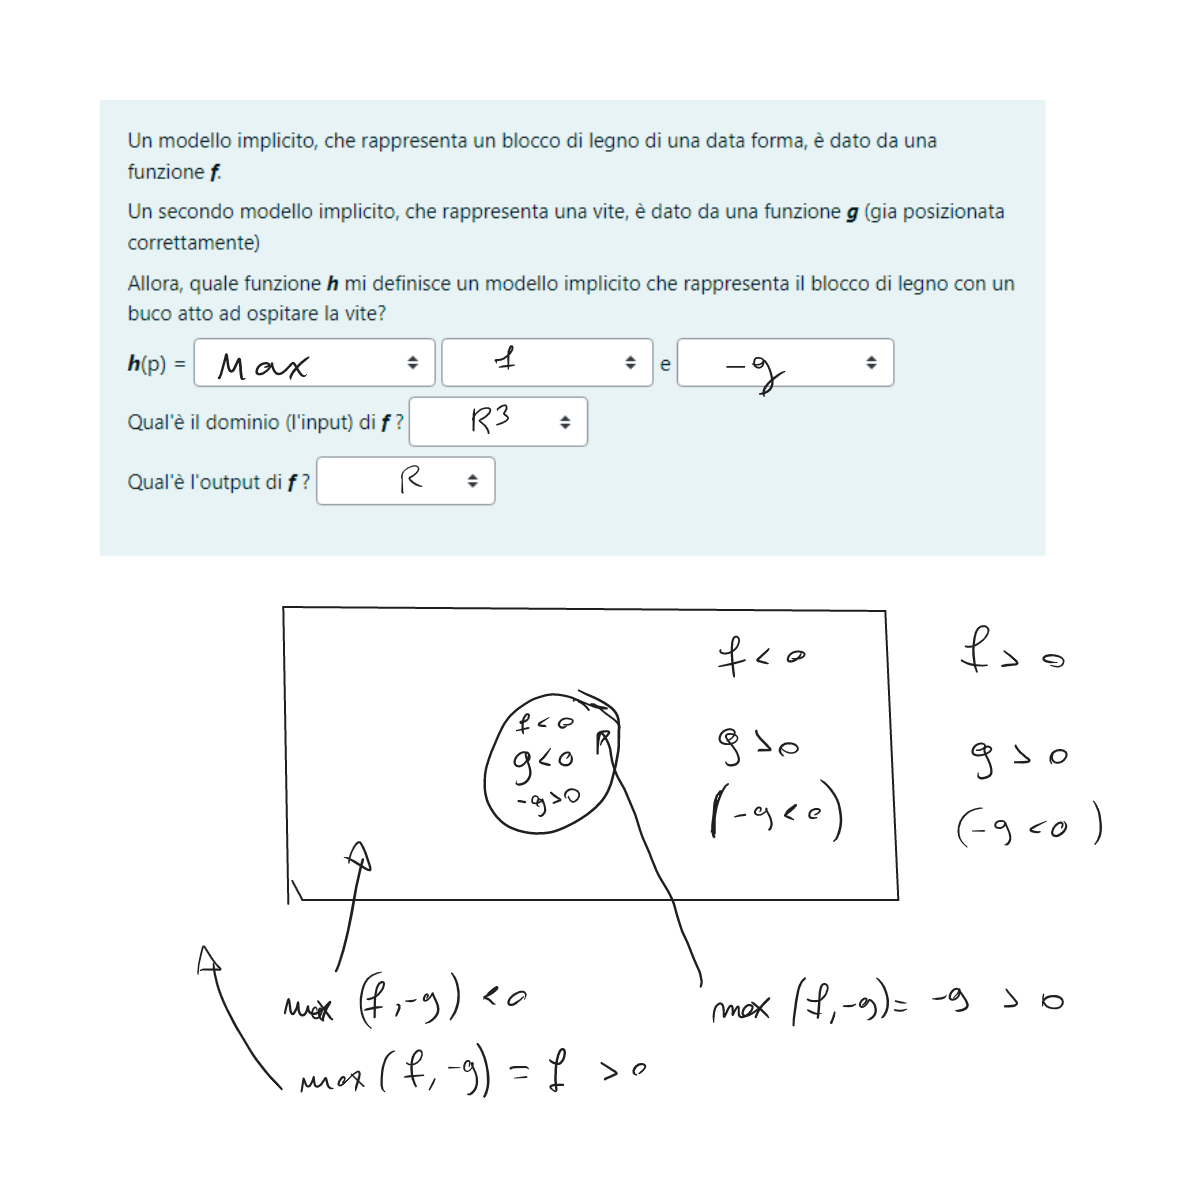 Un modello implicito, che rappresenta un blocco di legno di una data forma, è dato da una
funzione f.
Un secondo modello implicito, che rappresenta una vite, è dato da una funzione g (gia posizionata
correttamente)
Allora, quale funzione h mi definisce un modello implicito che rappresenta il blocco di legno con un
buco atto ad ospitare la vite?
h(p) = Max f e -g
Qual'è il dominio (l'input) di f ? R3
Qual'è l'output di f ? R
f < 0 f > 0
f < 0
g > 0 g > 0
g < 0
-g > 0
(-g < 0) (-g < 0)
max (f, -g) < 0 max (f, -g) = -g > 0
max (f, -g) = f > 0